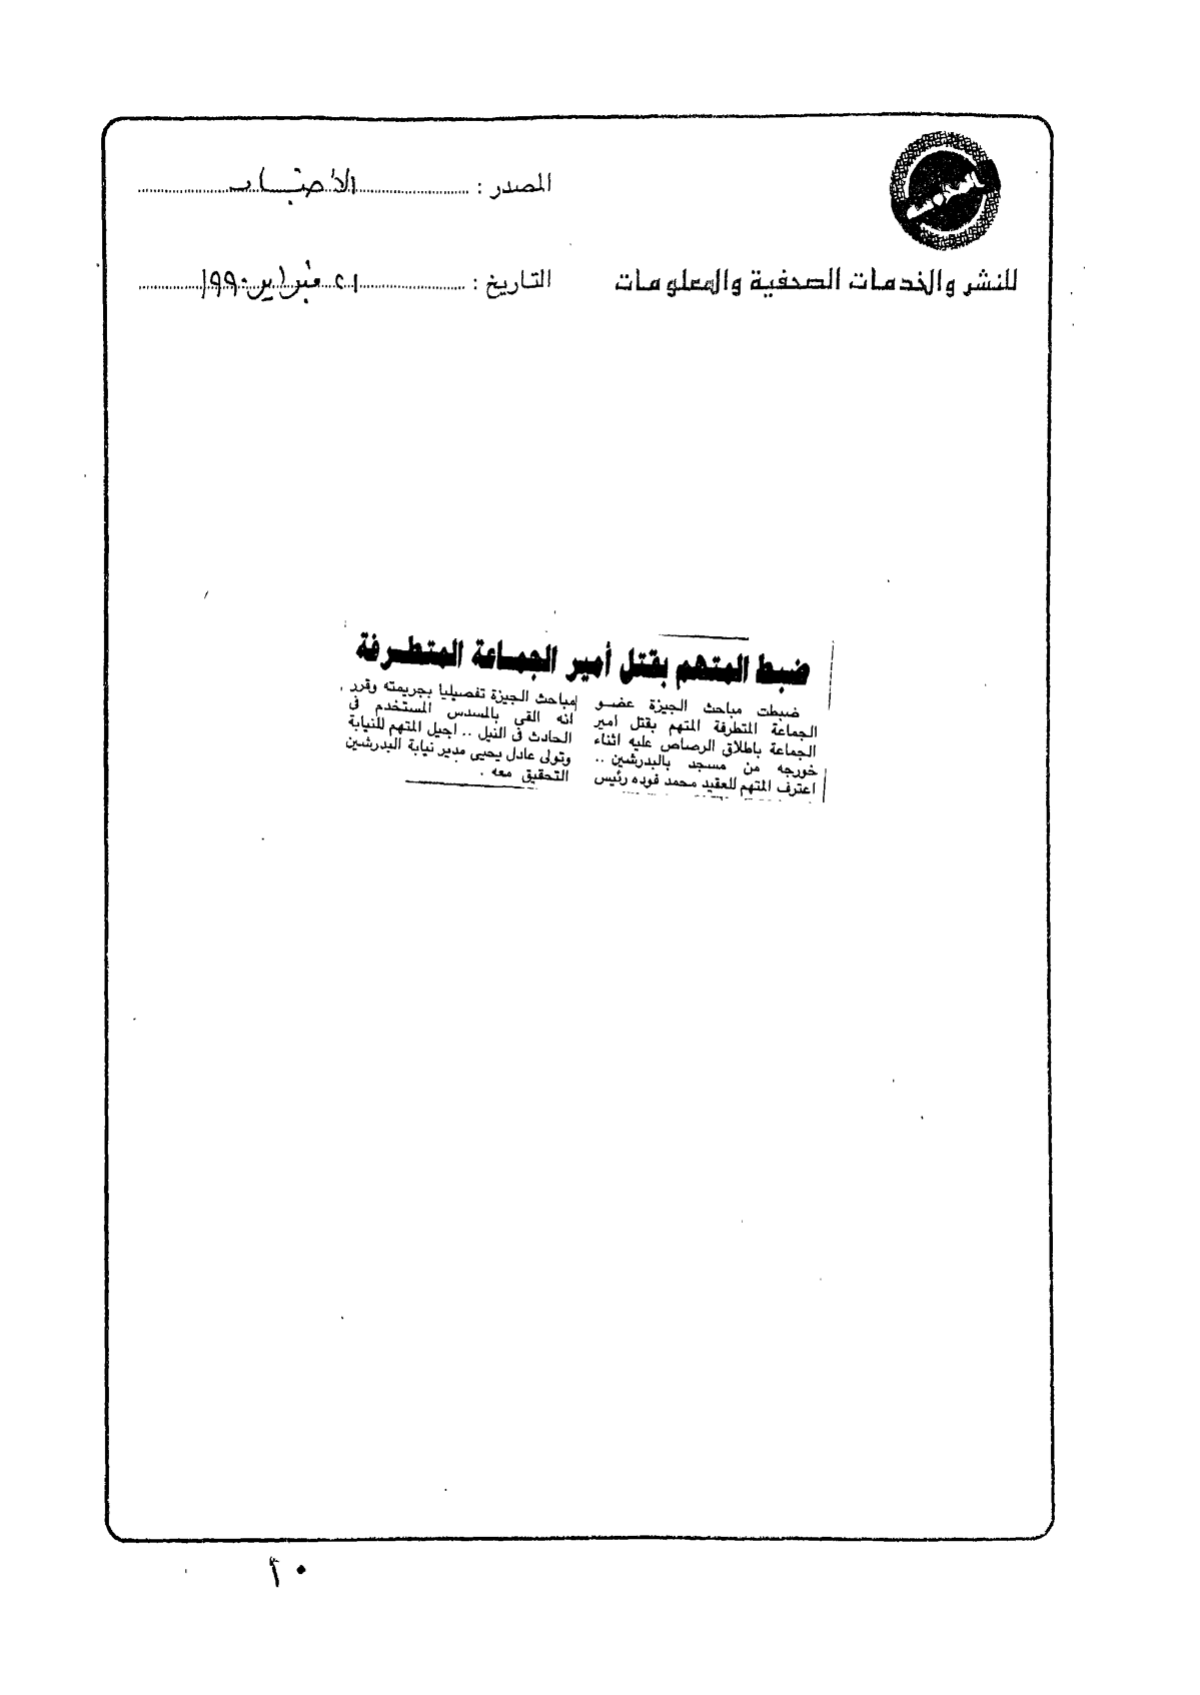 المصدر : الأخبار
للنشر والخدمات الصحفية والمعلومات
التاريخ : ٢١ فبراير ١٩٩٠
ضبط المتهم بقتل أمير الجماعة المتطرفة
ضبطت مباحث الجيزة عضو
الجماعة المتطرفة المتهم بقتل امير
الجماعة باطلاق الرصاص عليه اثناء
خروجه من مسجد بالبدرشين ..
اعترف المتهم للعقيد محمد فوده رئيس
مباحث الجيزة تفصيليا بجريمته وقرر
انه القى بالمسدس المستخدم فى
الحادث فى النيل .. احيل المتهم للنيابة
وتولى عادل يحيى مدير نيابة البدرشين
التحقيق معه .
٢٠